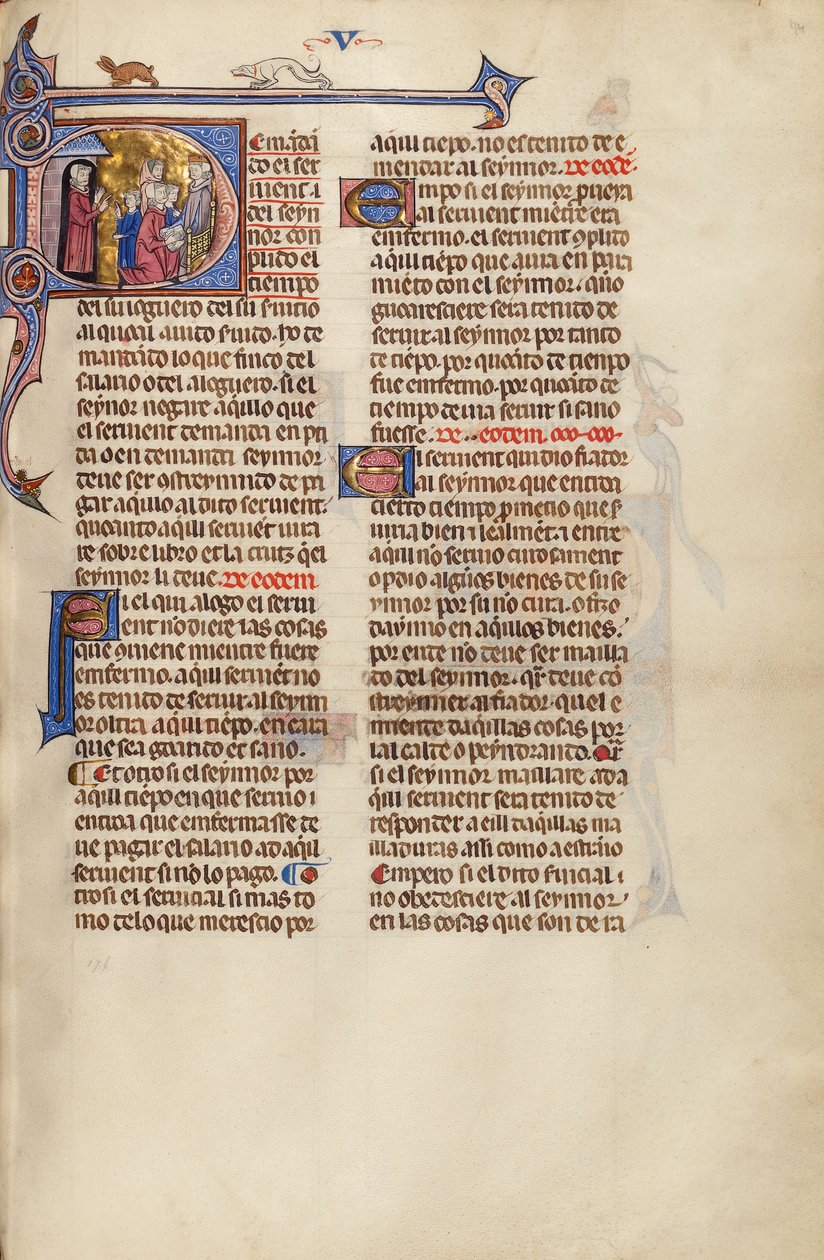 V
174
Emᷓdᷓ
do el ser
uient. ⁊
del seyn
nor con
plido el
tiempo
del su loguero del su seruicio
al quoal auido seruido. ho de
mandādo lo que finco del
salario o del aloguero. si el
seynor negare aq̄llo que
el serwient demanda en pti
da o en demandā seynnor
deue ser 9streynnido de pa
gar aq̄llo al dito seruient.
quoanto aq̄l seruiēt iura
re sobre libro et la cruz q̄ el
seynnor li deue. De eodem
Si el qui alogo el serui
ent nō diere las cosas
que 9uiene mientre fuere
enfermo. aq̄l seruiēt no
es tenido de seruir. al seynn
or oltra aq̄l tiēpo. en cara
que sea goarido et sano.
Et otro si el seynnor por
aq̄ll tiēpo en que seruio ⁊
entida que enfermasse de
ue pagar el salario ad aq̄l
seruient si nō lo pago. O
tro si el seruicial si mas to
mo de lo que merescio por
aq̄ll tiēpo. no es tenido de e
mendar al seynnor. De eodē.
Empo si el seynnor prueua
al seruient miētre era
enfermo. el seruient 9plido
aq̄l tiēpo que auia en para
miēto con el seynnor. q̄ño
guaresciere sera tenido de
seruir. al seynnor por tanto
de tiēpo. por quoāto de tienpo
fue enfermo. por quoāto de
tiempo deuia seruir si sano
fuesse. De eodem
El seruient qui dio fiador
al seynnor que entroa
cierto tiempo pmetio que s̄
uiria bien ⁊ lealmēt. ⁊ entre
aq̄l nō seruio curosament
o pdio algūos bienes de su se
ynnor por su nō cura. o fizo
daynno en aq̄llos bienes.
por ende nō deue ser mailla
do del seynnor. q̄r deue cō
streynner al fiador quel e
miende daq̄llas cosas por
lal calde o peyndrando. Q̄r
si el seynnor maillare ad a
q̄l seruient sera tenido de
responder a eill daq̄llas ma
illaduras assi como a estrāio
Empero si el dito s̄uicial ⁊
no obedesciere al seynnor
en las cosas que son de ra
176